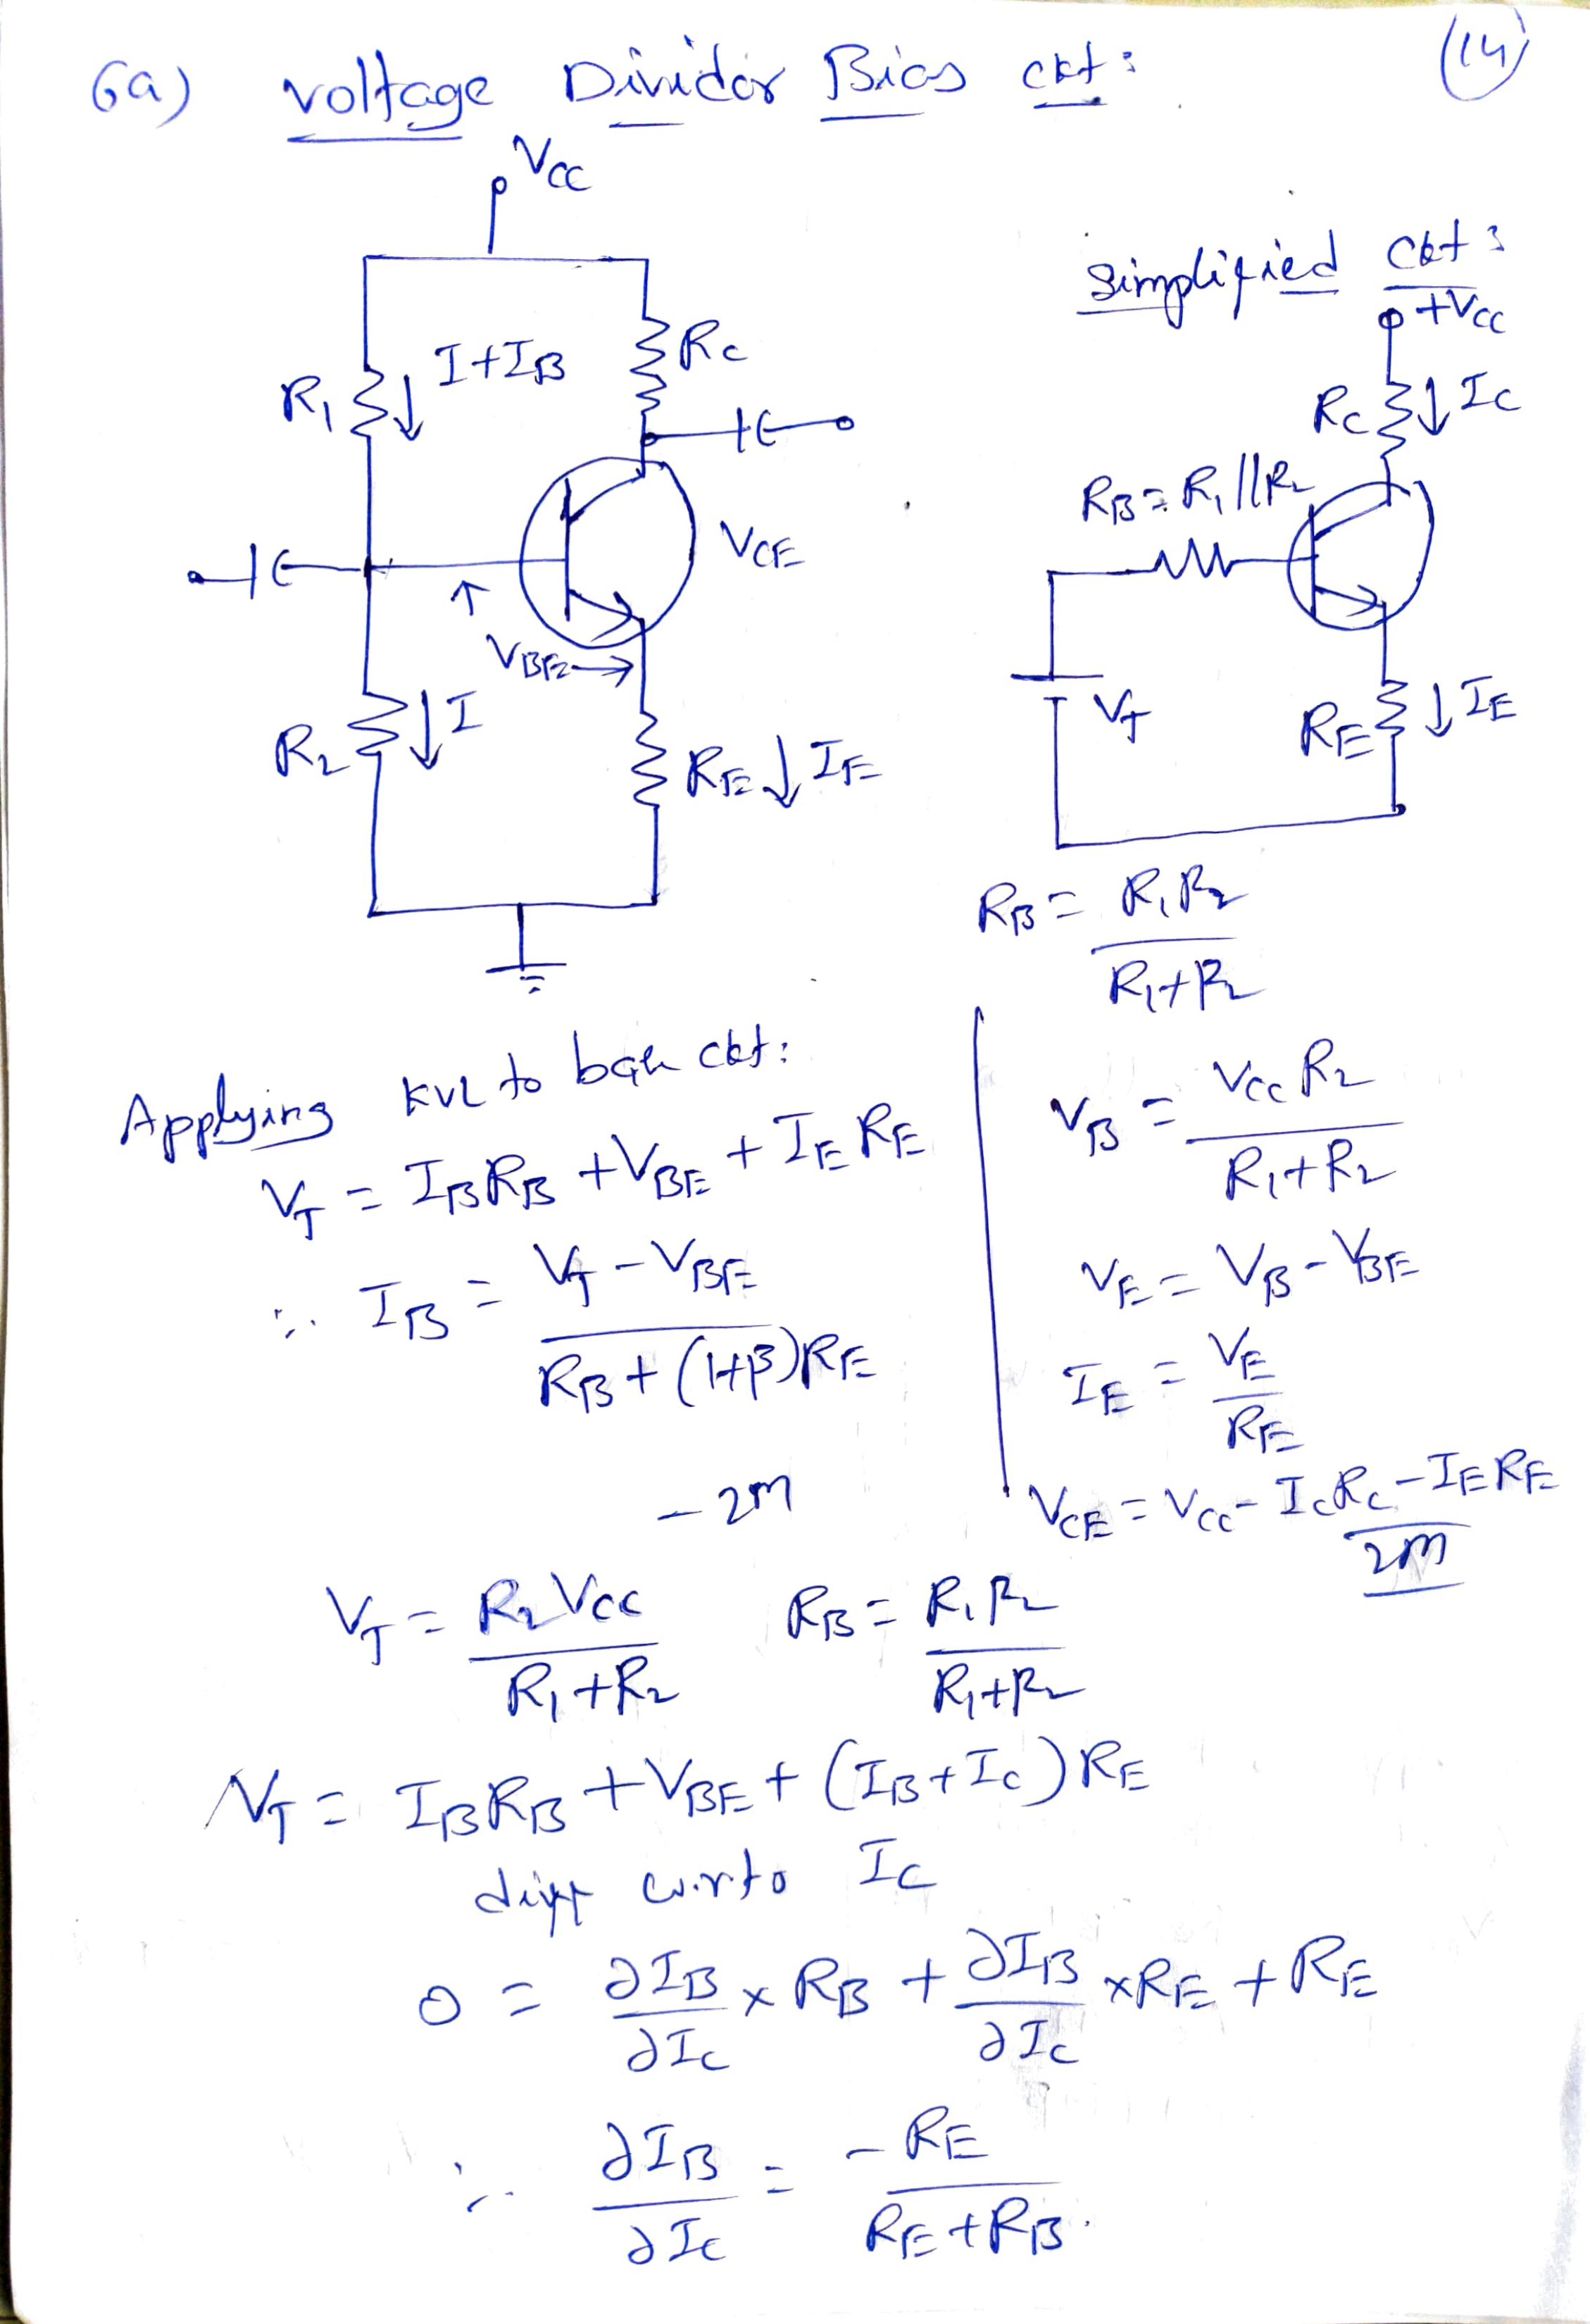 6a) Voltage Divider Bias ckt: (14)
VCC
Simplified ckt:
+VCC
R1 I+IB RC
RC IC
RB = R1||R2
VCE
VBE
R2 I
RE IE
VT
RE IE
RB = R1R2 / R1+R2
Applying KVL to base ckt:
VT = IBRB + VBE + IERE
∴ IB = VT - VBE / RB + (1+β)RE
- 2M
VB = VCC R2 / R1+R2
VE = VB - VBE
IE = VE / RE
VCE = VCC - ICRC - IERE
2M
VT = R2 VCC / R1+R2 RB = R1R2 / R1+R2
VT = IBRB + VBE + (IB+IC)RE
diff w.r.to IC
0 = ∂IB/∂IC × RB + ∂IB/∂IC × RE + RE
∴ ∂IB/∂IC = -RE / RE+RB.